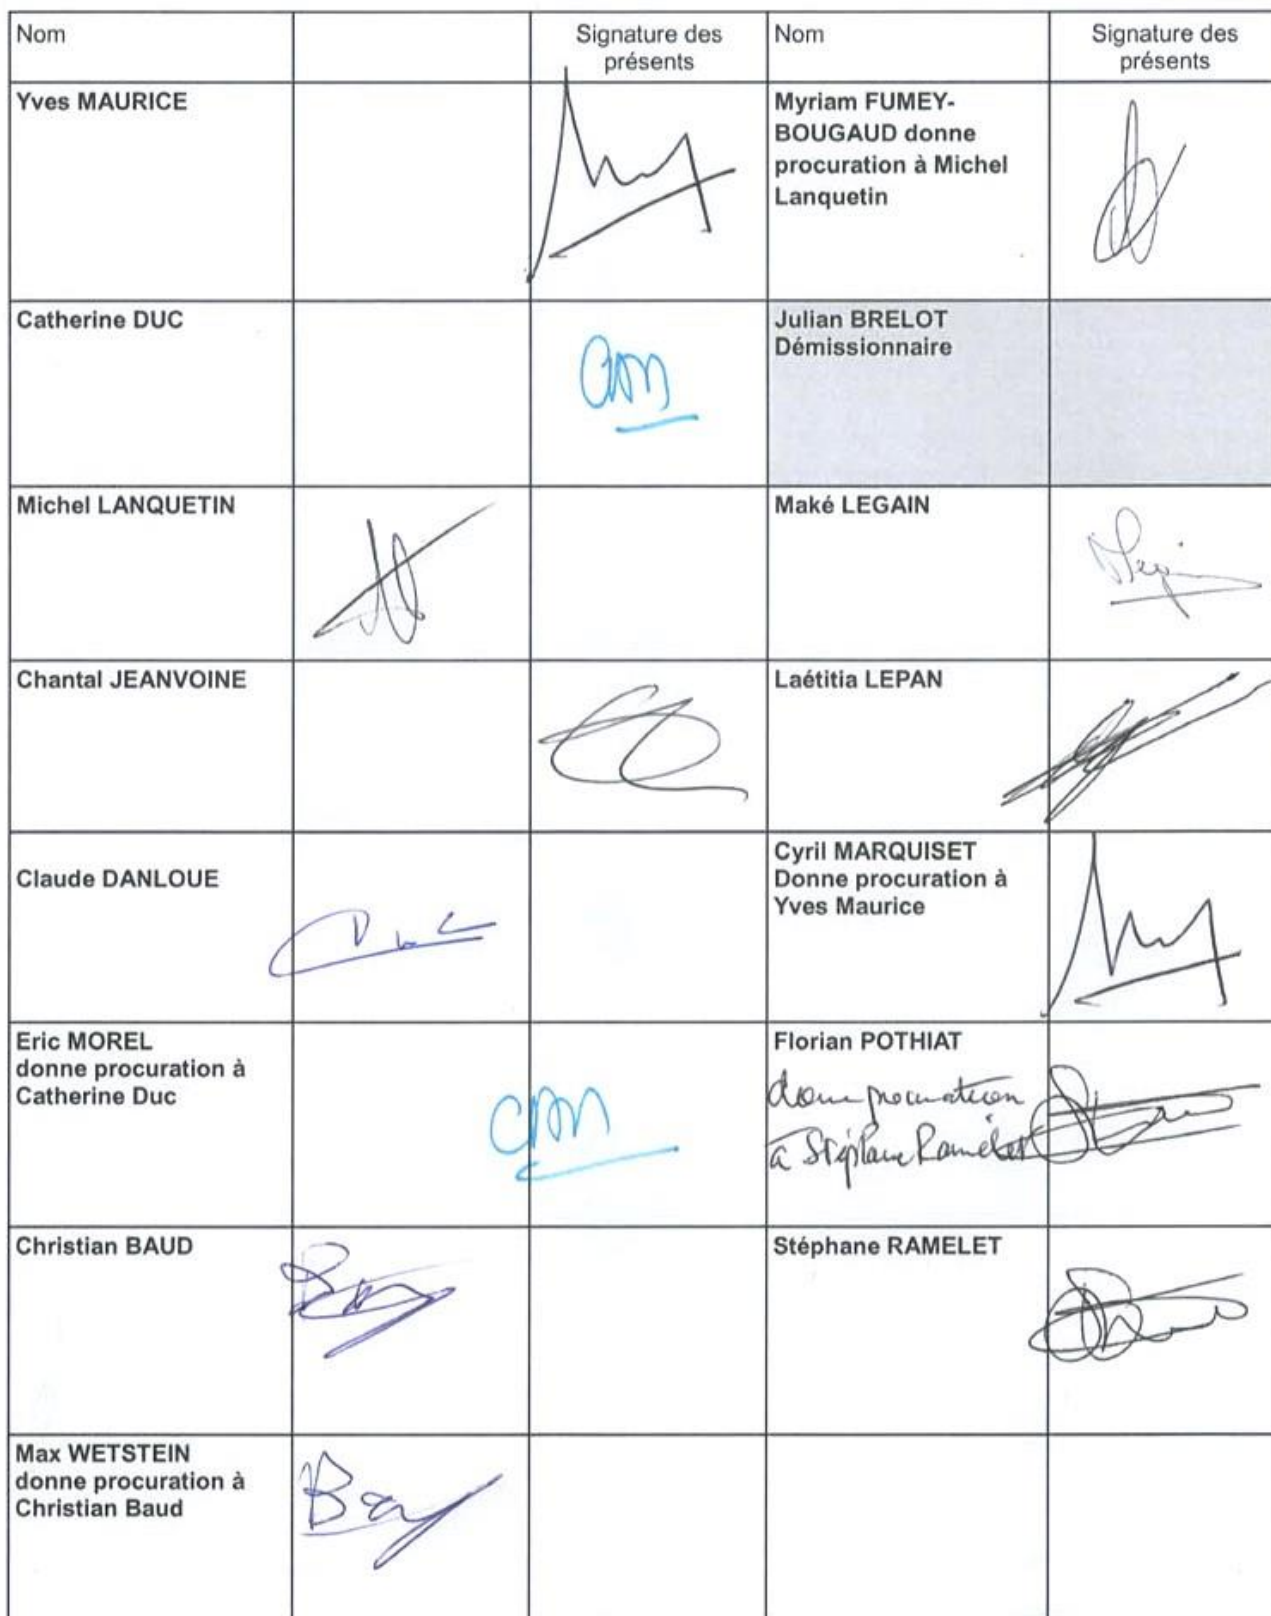 Nom
Signature des
présents
Nom
Signature des
présents
Yves MAURICE
Myriam FUMEY-
BOUGAUD donne
procuration à Michel
Lanquetin
Catherine DUC
Julian BRELOT
Démissionnaire
Michel LANQUETIN
Maké LEGAIN
Chantal JEANVOINE
Laétitia LEPAN
Claude DANLOUE
Cyril MARQUISET
Donne procuration à
Yves Maurice
Eric MOREL
donne procuration à
Catherine Duc
Florian POTHIAT
donne procuration
à Stéphane Ramelet
Christian BAUD
Stéphane RAMELET
Max WETSTEIN
donne procuration à
Christian Baud